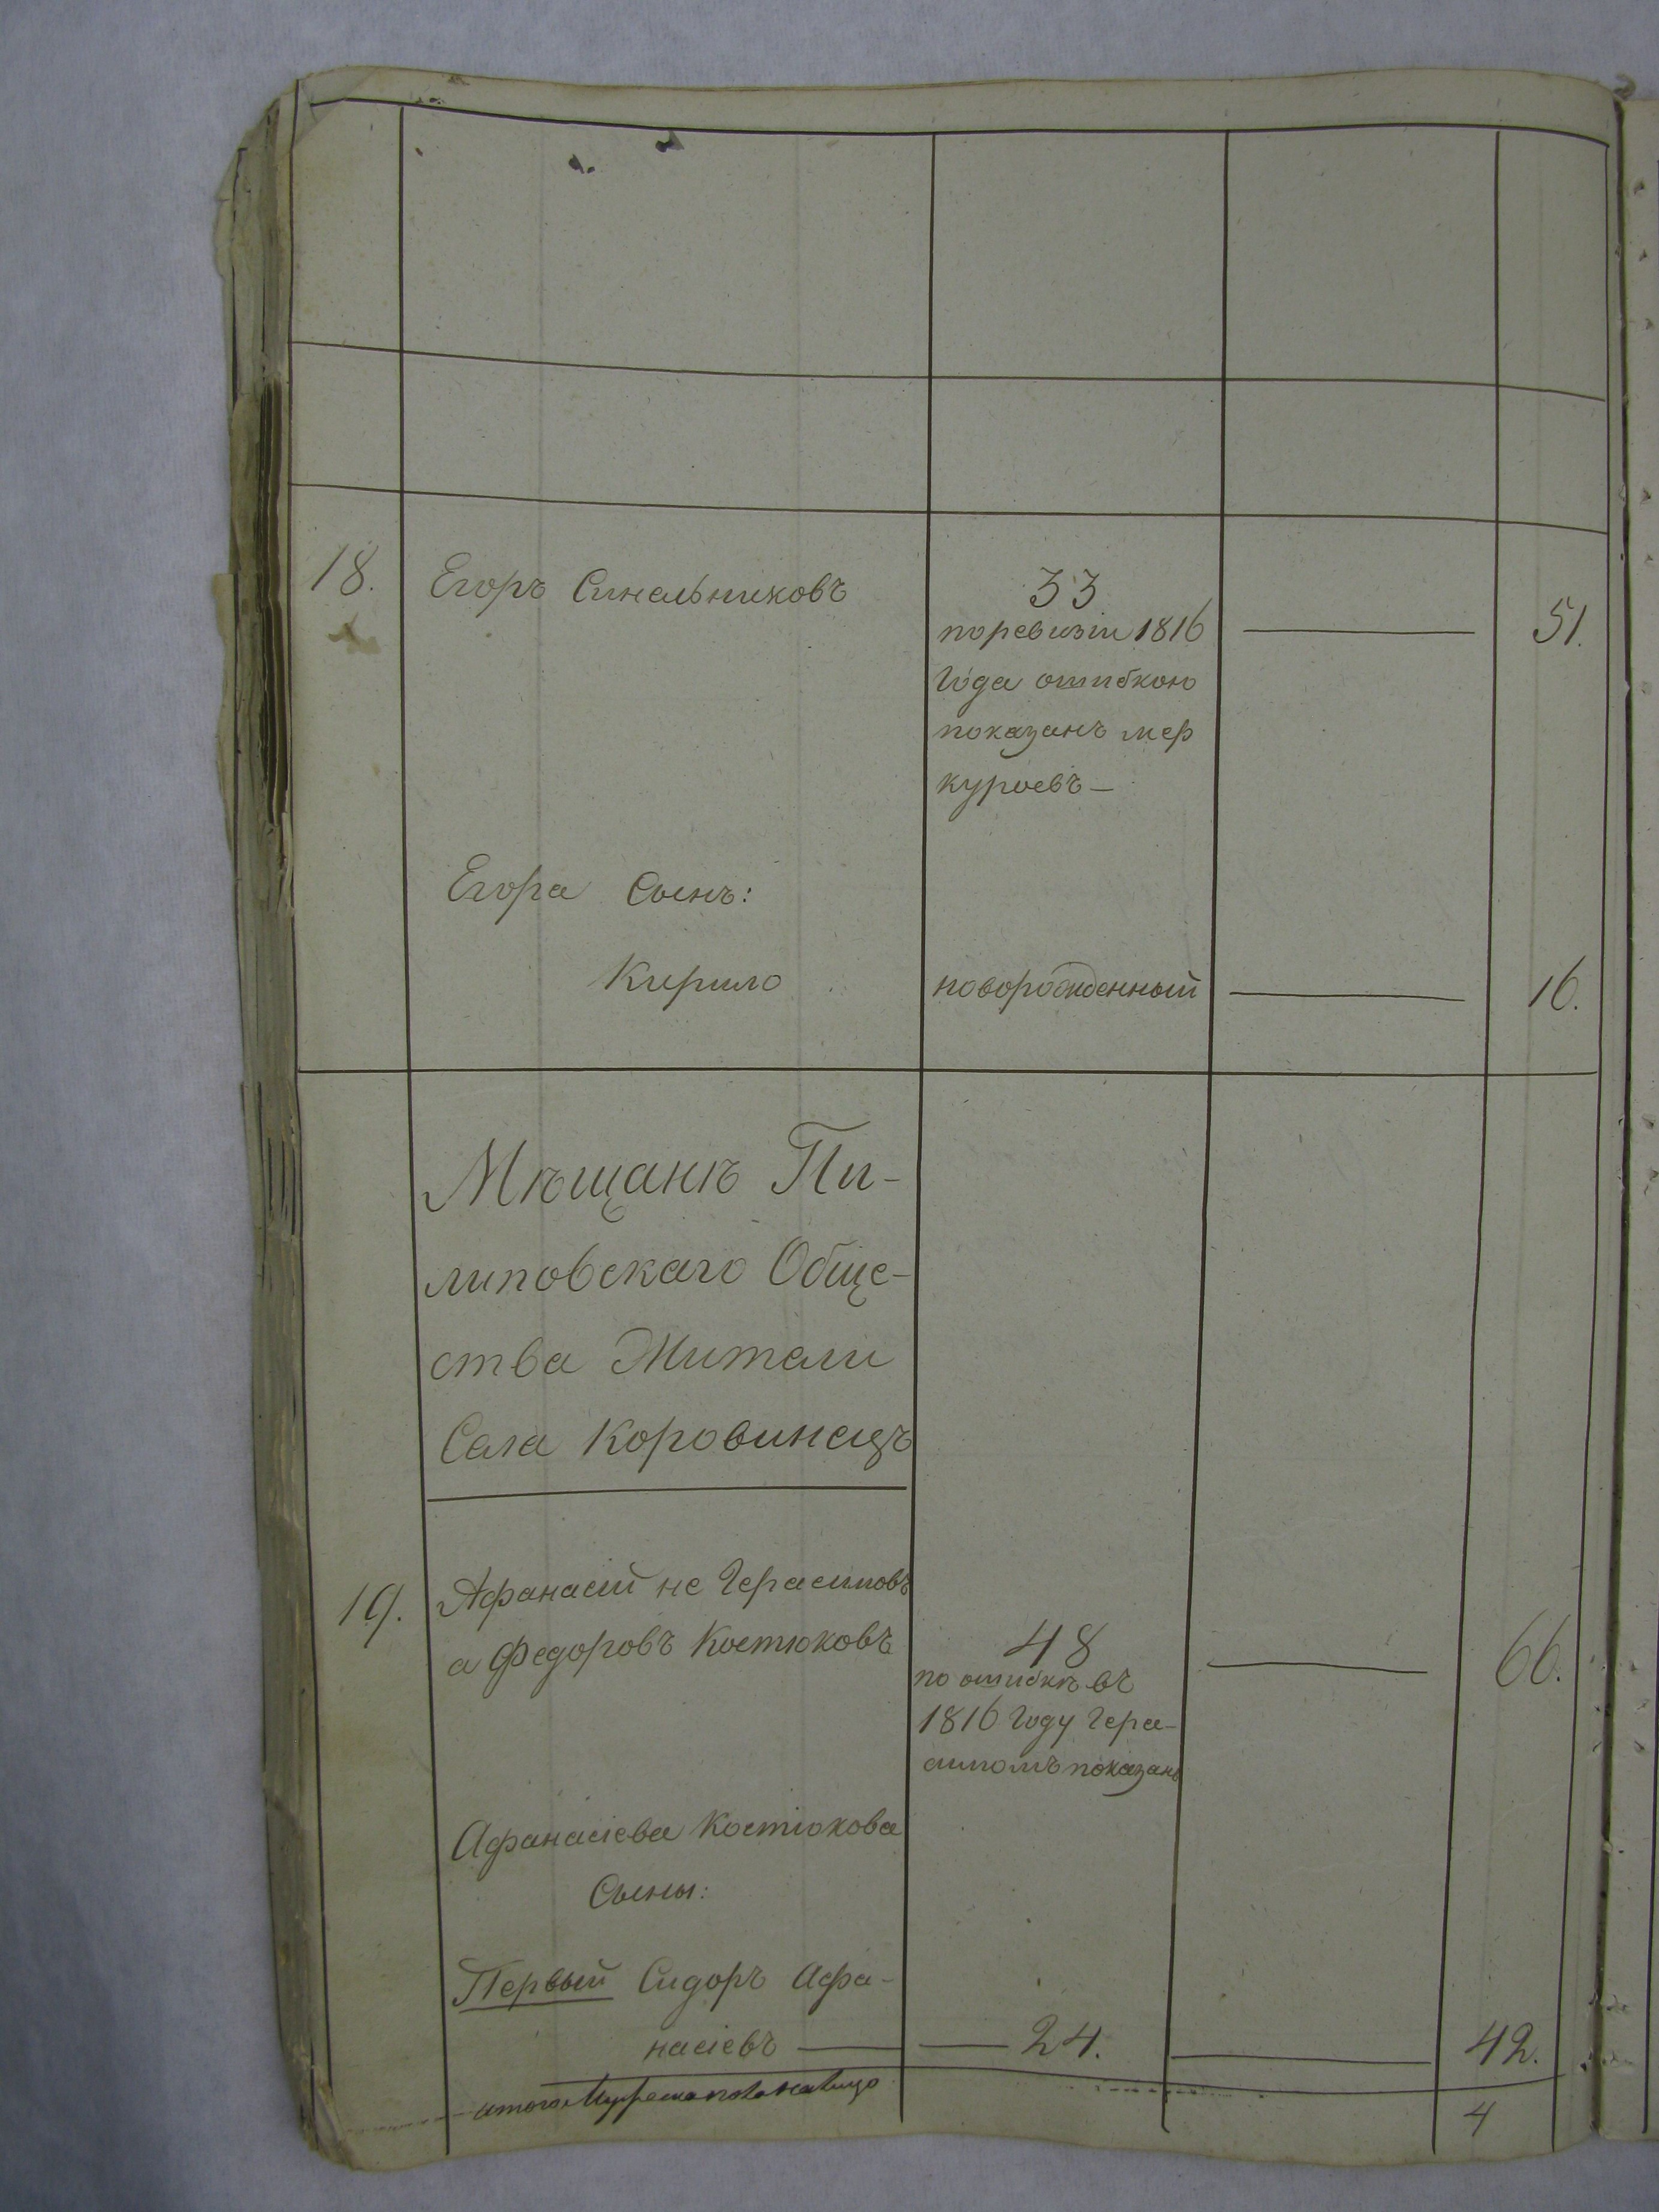 18. Егоръ Синельниковъ 33 51.
поревизіи 1816
Года ошибкою
показанъ мер
куріевъ —
Егора Сынъ:
Кирило новорожденный 16.
Мѣщанъ Пи-
липовскаго Обще-
ства Жители
Села Коровинецъ
19. Афанасій не Герасимовъ
а Федоровъ Костюковъ 48 66.
по ошибкѣ въ
1816 Году Гера-
симомъ показанъ
Афанасіева Костюкова
Сыны:
Первый Сидоръ Афа-
насіевъ 24. 42.
итого Мужеска пола налицо 4